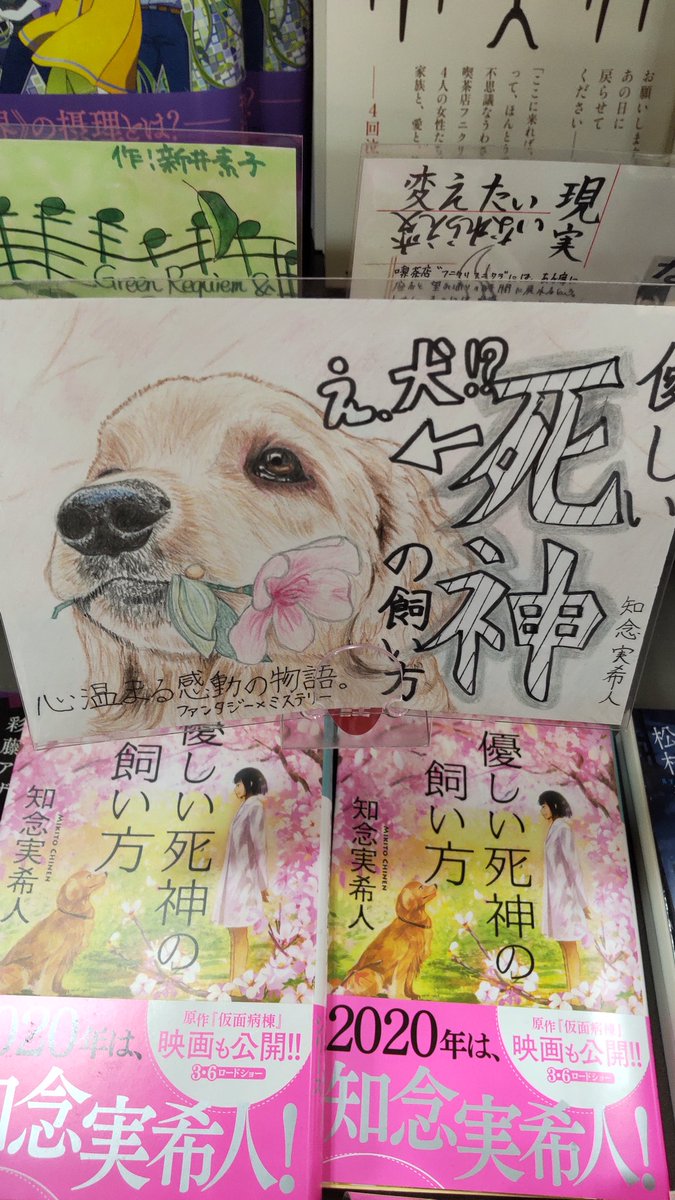 の摂理とは?
お願いします
あの日に
戻らせて
ください――
「ここに来れば、
って、ほんとう
不思議なうわさ
喫茶店フニクリ
4人の女性たち
家族と、愛と
――4回泣
作:新井素子
Green Requiem &
現実
変えたい
変えられない
優しい
死神
の飼い方
え、犬!?
知念実希人
心温まる感動の物語。
ファンタジー×ミステリー
優しい死神の
飼い方
知念実希人
MIKITO CHINEN
2020年は、
原作『仮面病棟』
映画も公開!!
3・6ロードショー
知念実希人!
優しい死神の
飼い方
知念実希人
MIKITO CHINEN
2020年は、
原作『仮面病棟』
映画も公開!!
3・6ロードショー
知念実希人!